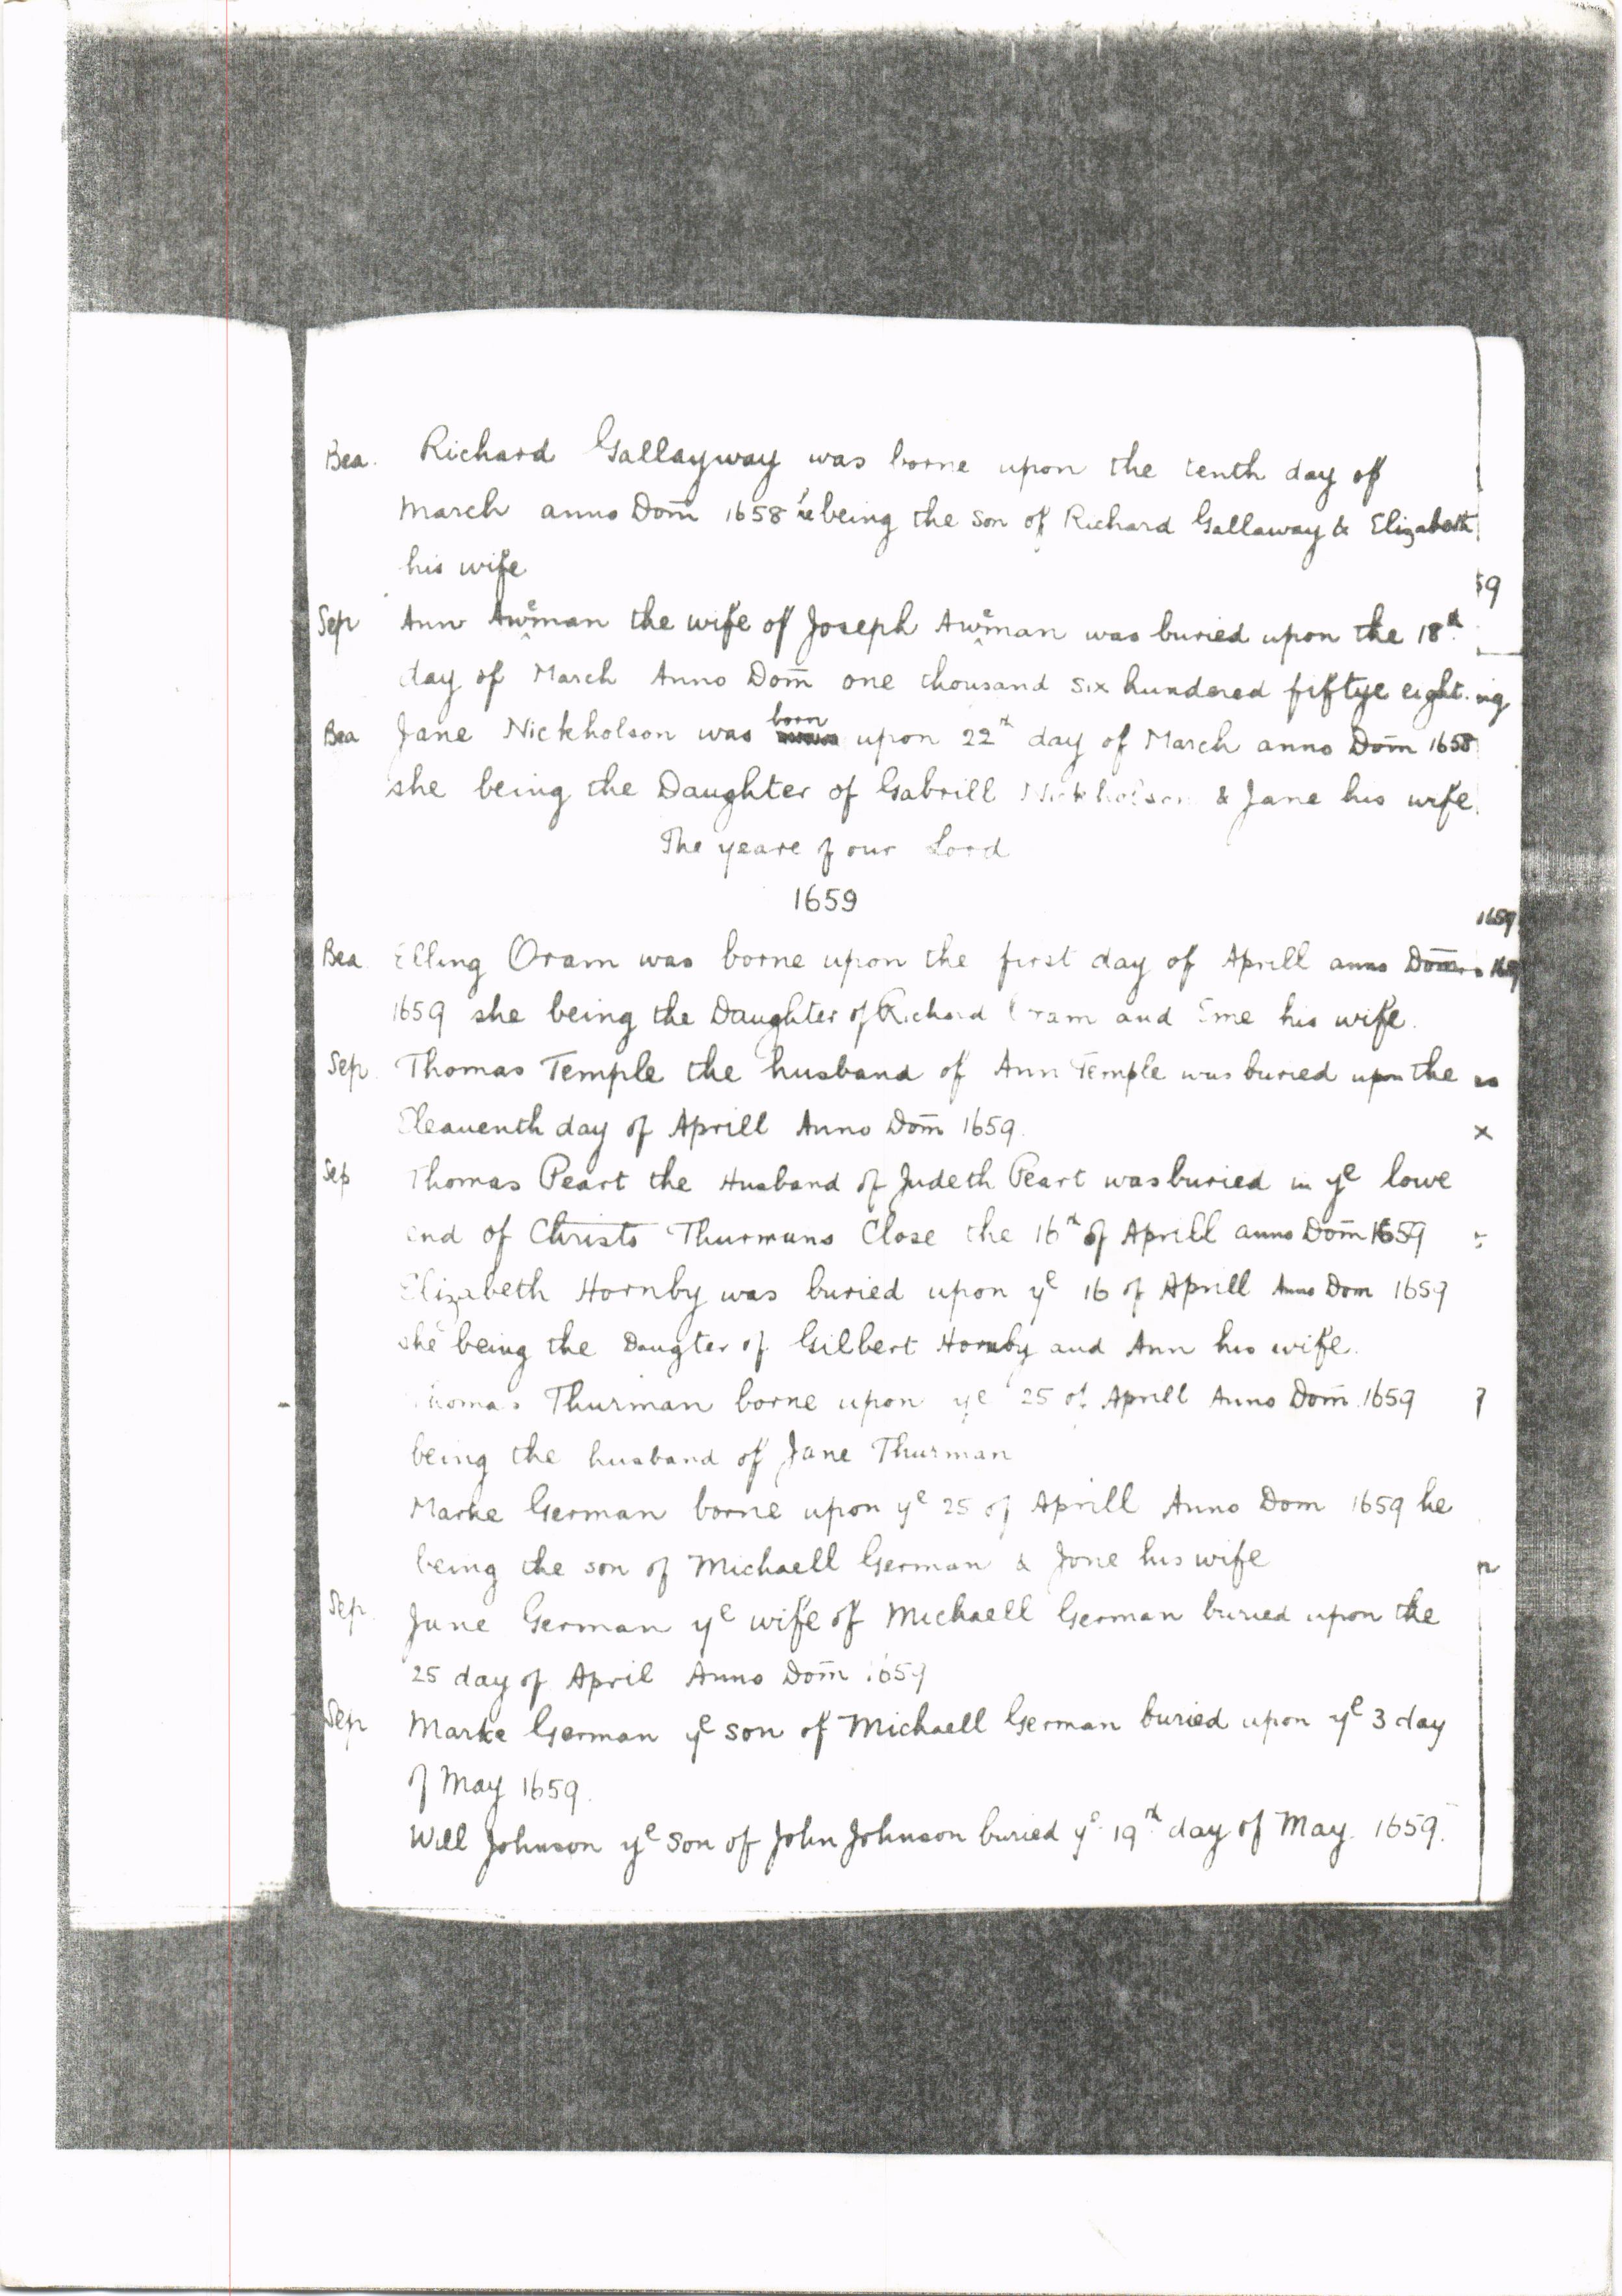 Bea. Richard Gallayway was borne upon the tenth day of
March anno Dom̄ 1658 he being the Son of Richard Gallaway & Elizabeth
his wife
59
Sep Ann Aweman the wife of Joseph Aweman was buried upon the 18th
day of March Anno Dom̄ one thousand six hundered fiftye eight. ng
Bea Jane Nickholson was born upon 22th day of March anno Dom̄ 1658
she being the Daughter of Gabrill Nickholson & Jane his wife
The yeare of our Lord
1659
1659
Bea Elling Oram was borne upon the first day of Aprill anno Dom̄
1659 she being the Daughter of Richard Oram and Eme his wife.
Sep. Thomas Temple the husband of Ann Temple was buried upon the
Eleaventh day of Aprill Anno Dom̄ 1659. x
Sep Thomas Peart the Husband of Judeth Peart was buried in ye lowe
end of Christo Thurmans Close the 16th of Aprill anno Dom̄ 1659
Elizabeth Hornby was buried upon ye 16 of Aprill Anno Dom 1659
she being the Daugter of Gilbert Hornby and Ann his wife.
Thomas Thurman borne upon ye 25 of Aprill Anno Dom̄ 1659
being the husband of Jane Thurman
Marke German borne upon ye 25 of Aprill Anno Dom 1659 he
being the son of Michaell German & Jone his wife
Sep. June German ye wife of Michaell German buried upon the
25 day of April Anno Dom̄ 1659
Sep Marke German ye son of Michaell German buried upon ye 3 day
of May 1659.
Will Johnson ye Son of John Johnson buried ye 19th day of May. 1659.